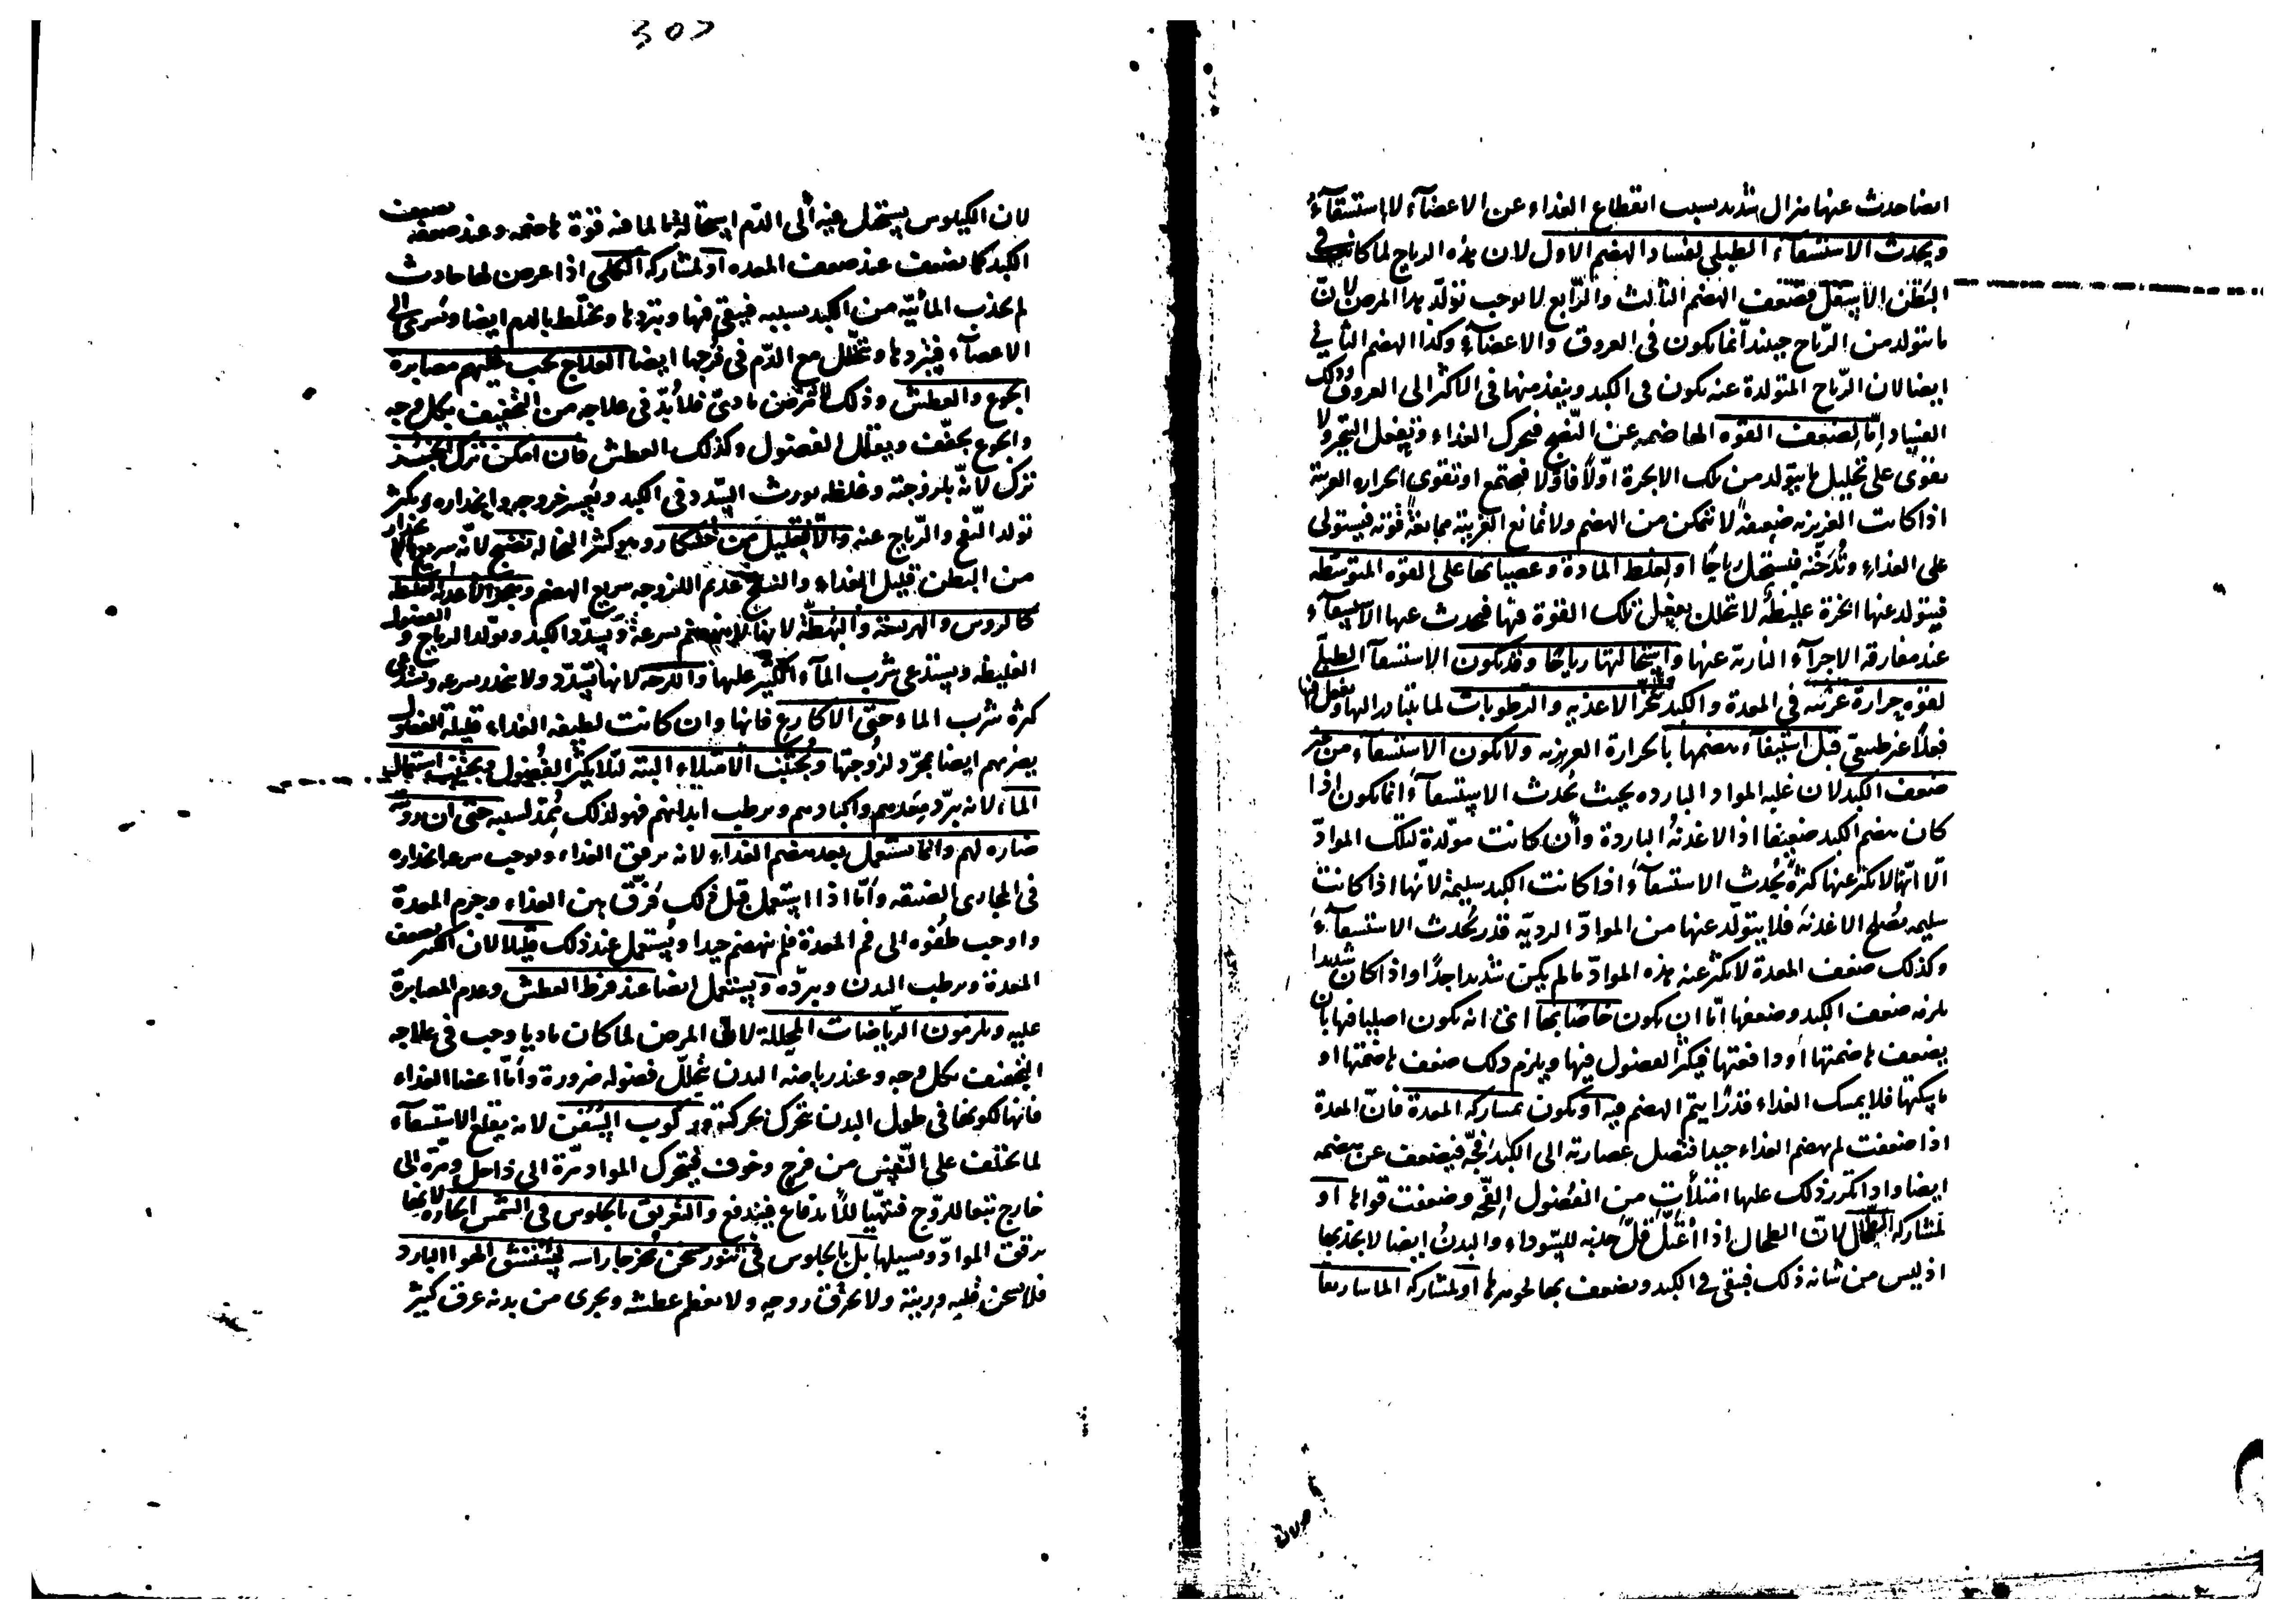 ايضا حدث عنها هزال شديد بسبب انقطاع الغذاء عن الاعضآء لا استسقآءُ
ويحدث الاستسقآء الطبلي لفساد الهضم الاول لان هذه الرياح لما كانت في
البطن الاسفل فضعف الهضم الثالث والرّابع لا يوجب تولّد هذا المرض لانّ
ما يتولد من الرّياح حينئذ انّما يكون في العروق والاعضآء وكذا الهضم الثاني
ايضا لان الرّياح المتولدة عنه يكون في الكبد وينفذ منها في الاكثر الى العروق وذلك
الفساد امّا لضعف القوه الهاضمه عن النّضج فيحرك الغذاء ويفعل التبخر ولا
يقوى على تحليل ما يتولد من تلك الابخرة اوّلاً فاوّلا فيجتمع او تقوى الحراره الغريبة
اذا كانت الغريزيه ضعيفةً لا تتمكن من الهضم ولا تمانع الغريبة ممانعةً قوّته فيستولى
على الغذاء وتُدخّنه فيستحيل رياحًا او لغلظ المادة وعصيانها على القوه المتوسّطه
فيتولد عنها ابخرة غليظة لا تتحلل بفعل تلك القوة فيها فيحدث عنها الاستسقآء
عند مفارقه الاجزآء الناريه عنها واستحالتها رياحًا وقد يكون الاستسقآ الطبلّي
لقوه حرارة غريبه في المعدة والكبد تبخّر الاغذيه والرطوبات لما يتبادر اليها ويفعل فيها
فعلاً غير طبيعيّ قبل استيفآء هضمها بالحرارة الغريزيه ولا يكون الاستسقآء من غير
ضعف الكبد لان غلبه المواد البارده بحيث يحدث الاستسقآءَ انما يكون اذا
كان هضم الكبد ضعيفا اذ الاغذيةُ الباردة وأن كانت مولّدة لتلك الموادّ
الّا انّها لا تكثر عنها كثرةً يُحدث الاستسقآءَ اذا كانت الكبد سليمة لانّها اذا كانت
سليمه تصلح الاغذيه فلا يتولّد عنها من الموادّ الرديّه قدر يُحدث الاستسقآءَ
وكذلك ضعف المعدة لا يكثر عنه هذه الموادّ ما لم يكن شديدا جدًّا واذا كان شديدا
يلزمه ضعف الكبد وضعفها امّا ان يكون خاصّا بها اعنى انه يكون اصليا فيها بان
يضعف هاضمتها او دافعتها فيكثر الفضول فيها ويلزم ذلك ضعف هاضمتها او
ماسكتها فلا يمسك الغذاء قدرًا يتم الهضم فيه او يكون بمشاركه المعدة فانّ المعدة
اذا ضعفت لم يهضم الغذاء جيدا فتصل عصارته الى الكبد فجّه فيضعف عن هضمه
ايضا واذا تكرر ذلك عليها امتلأت من الفضول الفجّه وضعفت قواها او
لمشاركه الطحال لانّ الطحال اذا اعتلّ قلّ جذبه للسّوداء والبدنُ ايضا لا يجذبها
اذ ليس من شانه ذلك فيبقى في الكبد ويضعف بها جوهرها او لمشاركه الماساريقا
لان الكيلوس يستحيل فيه الى الدّم استحالة ما لما فيه قوّة هاضمه وعند ضعفه يضعف
الكبد كما يضعف عند ضعف المعده او لمشاركه الكلى اذا عرض لها حادث
لم يجذب المائيّه من الكبد بسببه فيبقى فيها ويبرّدها ويختلط بالدم ايضا ويسرى الى
الاعضآء فيبرّدها وتتخلل مع الدّم في فُرَجها ايضا العلاج يجب عليهم مصابرة
الجوع والعطش وذلك لانّه مرض مادىّ فلا بُدّ في علاجه من التجفيف بكل وجه
والجوع يجفّف ويقلل الفضول وكذلك العطش فان امكن ترك الخبز
ترك لانّه بلزوجته وغلظه يورث السّدد في الكبد ويعسر خروجه وانحداره ويكثر
تولد النّفخ والرّياح عنه والّا فقليل من خشكار وهو كثير النخاله نضيج لانّه سريع الانحدار
من البطن قليل الغذاء والنفخ عديم اللزوجه سريع الهضم ويهجر الاغذيه الغليظه
كالروس والهريسة والبهطّة لانها لا ينهضم بسرعة ويسدّد الكبد ويولّد الرياح والفضول
الغليظه ويستدعى شرب المآء الكثير عليها واللزجه لانها تسدّد ولا ينحدر بسرعه ويستدعى
كثره شرب الماء حتى الاكارع فانها وان كانت لطيفه الغذاء قليلة الفضول
يضرّهم ايضا بمجرّد لزُوجتها ويُجتنب الامتلاء البتة لئلا يكثر الفضول ويجتنب استعمال
الماء لانه يبرّد معدهم واكبادهم ويرطب ابدانهم فهو لذلك مُمِدّ لسببه حتى ان رويته
ضاره لهم وانما يستعمل بعد هضم الغذاء لانه يرقق الغذاء ويوجب سرعه انحداره
في المجارى الضيقه وامّا اذا استعمل قبل ذلك فرّق بين الغذاء وجرم المعدة
واوجب طفوّه الى فم المعدة فلم ينهضم جيدا ويُستعمل عند ذلك قليلا لان الكثير يضعف
المعدة ويرطب البدن ويبرّده ويستعمل ايضا عند فرط العطش وعدم المصابرة
عليه ويلزمون الرّياضات المحللة لان المرض لما كان ماديا وجب في علاجه
التجفيف بكل وجه وعند رياضه البدن يتحلّل فضوله ضرورة وامّا اعضا الغذاء
فانها لكونها في طول البدن يتحرك بحركته وركوب السُّفُن لانه يقلع الاستسقآء
لما يختلف على النّفس من فرح وخوف فيتحرك المواد مرّة الى داخل ومرّه الى
خارج تبعا للرّوح فتتهيّا للاندفاع فيندفع والتعريق بالجلوس في الشمس الحاره لانها
يرقق الموادّ ويسيلها بل بالجلوس في تنور سخن مُخرجا راسه ليستنشق الهوا البارد
فلا يسخن قلبه وريته ولا يحرّق روحه ولا يعظم عطشه ويجرى من بدنه عرق كثير